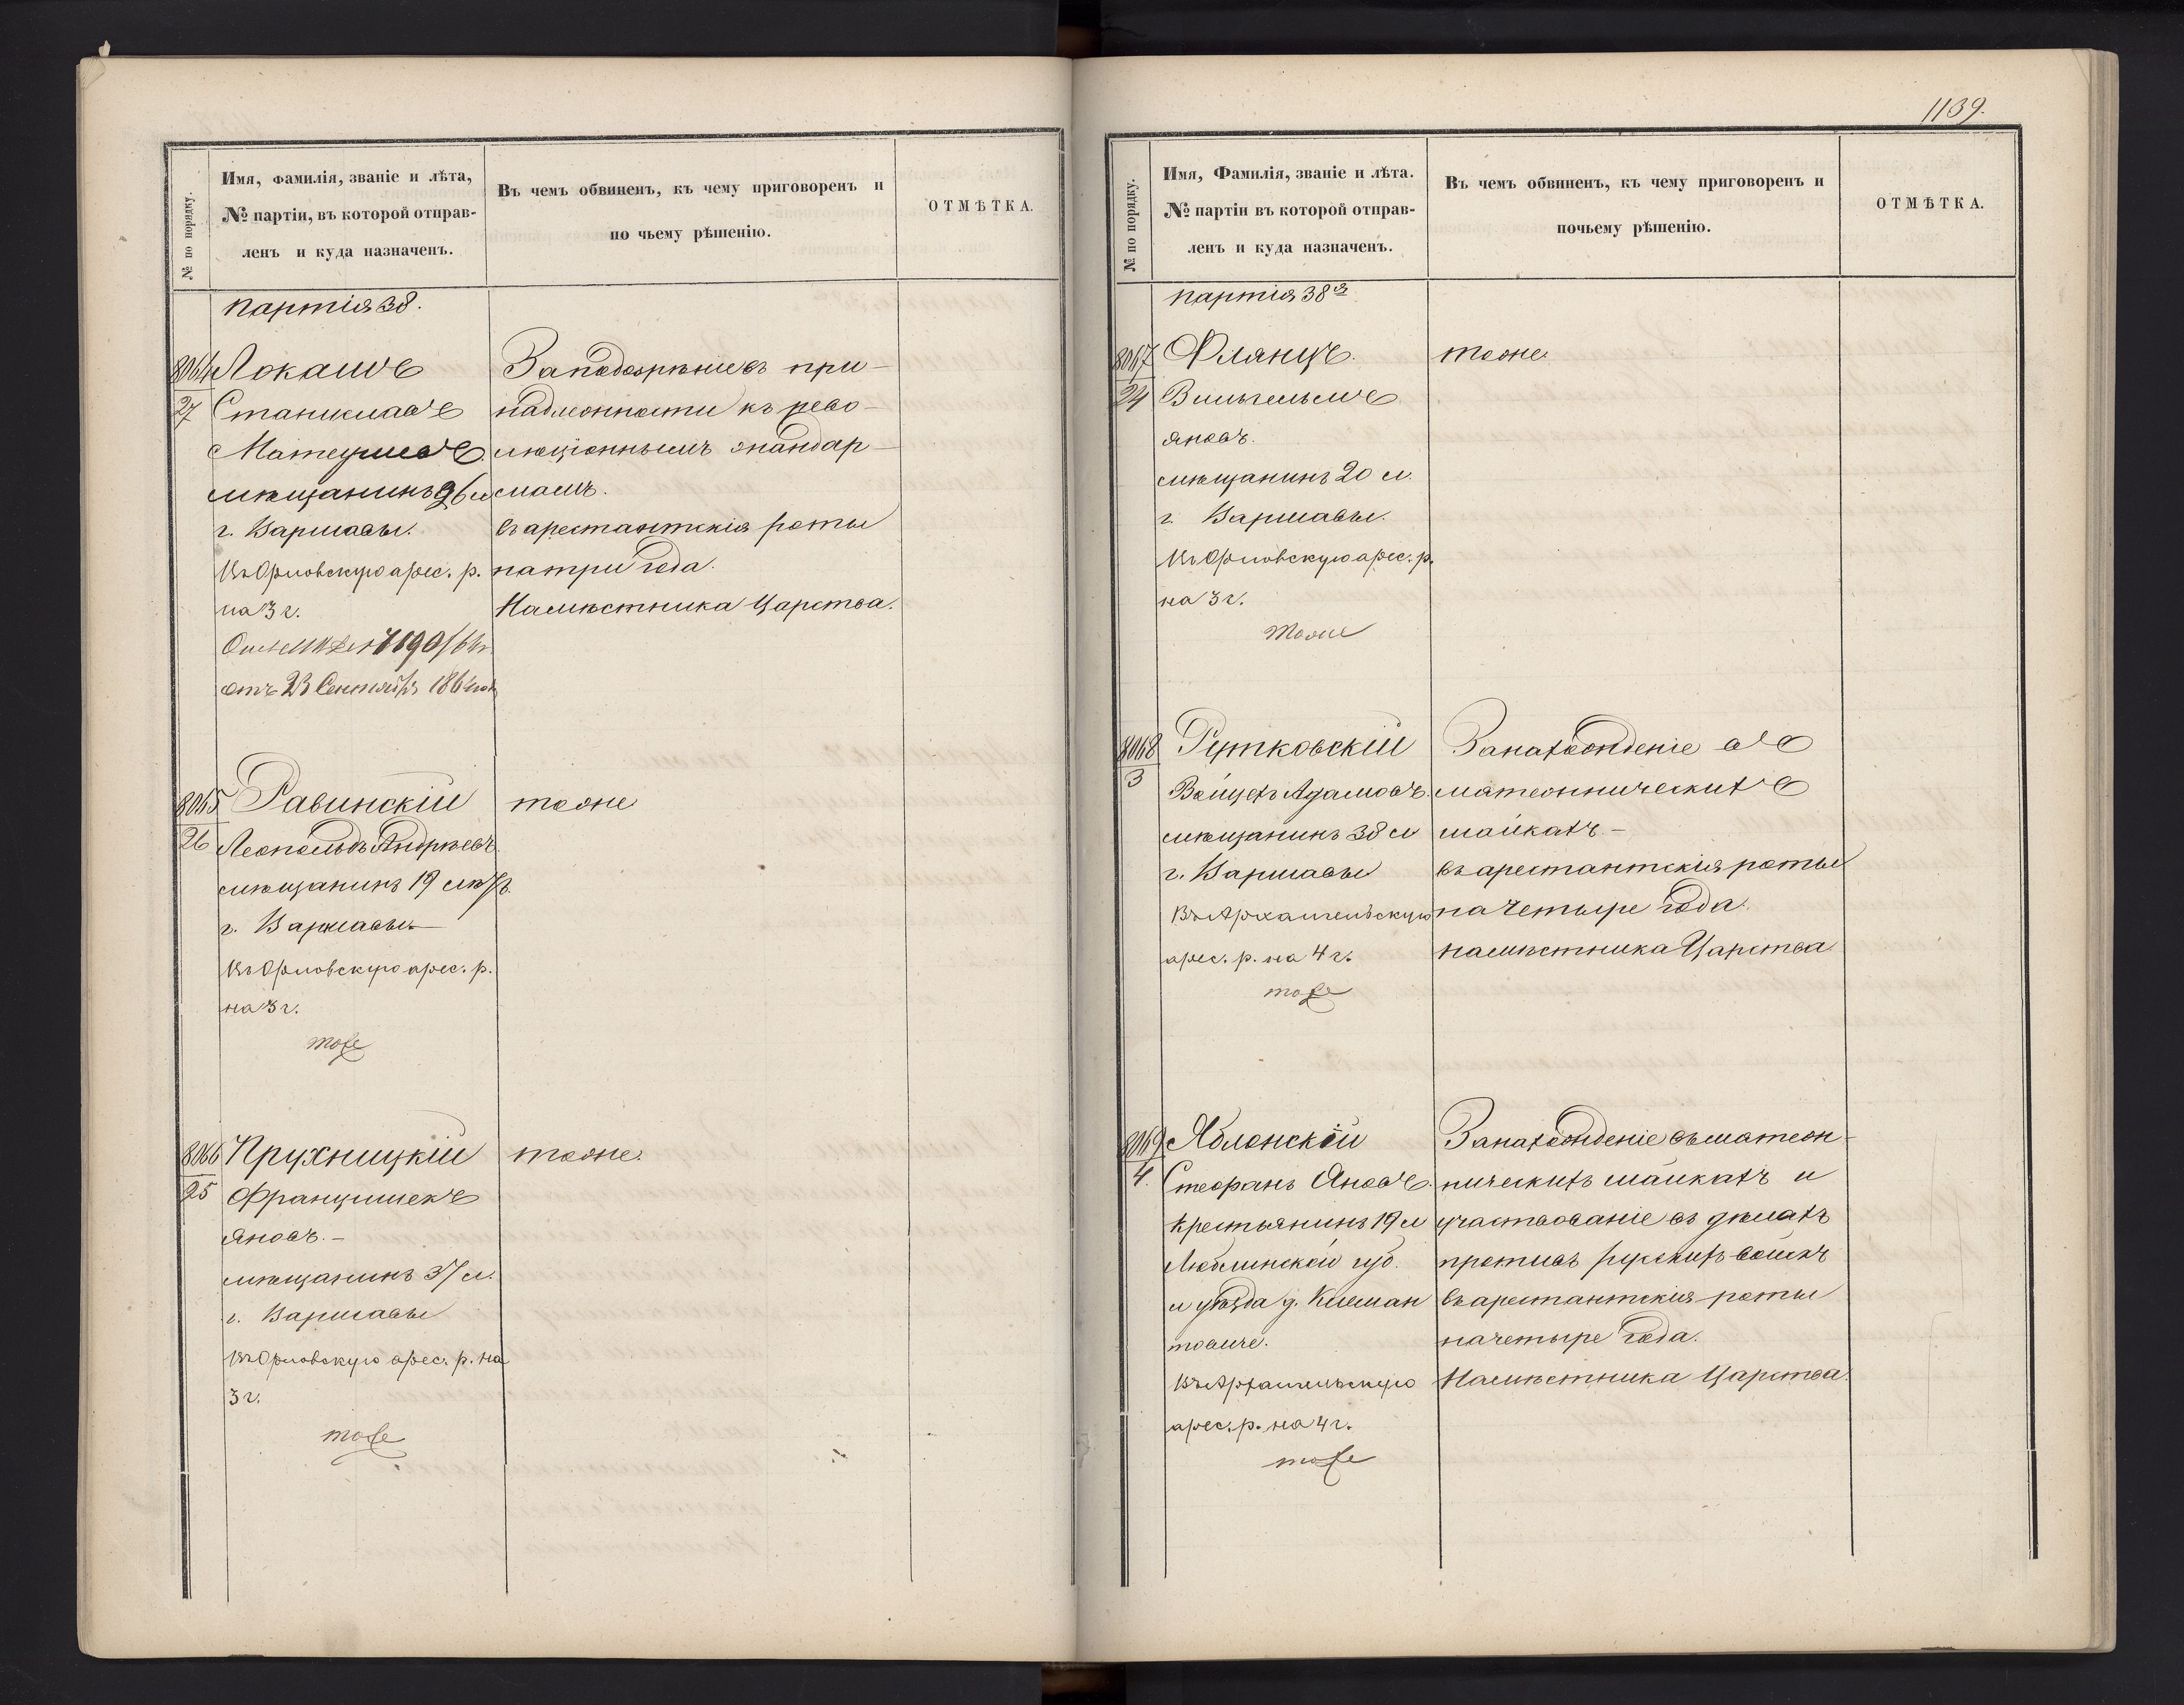 № по порядку.
Имя, фамилія, званіе и лѣта,
№ партіи, въ которой отправ-
ленъ и куда назначенъ.
Въ чемъ обвиненъ, къ чему приговоренъ и
по чьему рѣшенію.
ОТМѢТКА.
партія 38.
8064
27
Локашъ
Станиславъ
Матеушовъ.
мѣщанинъ 26 л
г. Варшавы.
Въ Орловскую арес. р.
на 3 г.
отъ 23 Сентября
За подозрѣніе въ при-
надлежности къ рево-
люціоннымъ жандар-
мамъ.
въ арестантскія роты
на три года.
Намѣстника Царства.
8065
26
Равинскій
Леопольдъ Андрѣевъ.
мѣщанинъ 19 лѣтъ
г. Варшавы
Въ Орловскую арес. р.
на 3 г.
тоже
тоже
8066
25
Прухницкій
Францишекъ
Яновъ.-
мѣщанинъ 37 л.
г. Варшавы
Въ Орловскую арес. р. на
3 г.
тоже
тоже.
1139.
№ по порядку.
Имя, Фамилія, званіе и лѣта.
№ партіи въ которой отправ-
ленъ и куда назначенъ.
Въ чемъ обвиненъ, къ чему приговоренъ и
почьему рѣшенію.
ОТМѢТКА.
партія 38я
8067
24
Флянцъ.
Вильгельмъ
Яновъ.
мѣщанинъ 20 л.
г. Варшавы.
Въ Орловскую арес. р.
на 3 г.
Тоже
тоже.
8068
3
Рутковскій
Войцехъ Адамовъ.
мѣщанинъ 38 л
г. Варшавы
Въ Архангельскую
арес. р. на 4 г.
тоже
За нахожденіе въ
мятежническихъ
шайкахъ.-
въ арестантскія роты
на четыре года.
намѣстника Царства
8069
4.
Яблонскій
Стефанъ Яновъ.
крестьянинъ 19 л
Люблинской губ.
и уѣзда д.
Въ Архангельскую
арес. р. на 4 г.
тоже
За нахожденіе въ мятеж-
ническихъ шайкахъ и
участвованіе въ дѣлахъ
противъ русскихъ войскъ
въ арестантскія роты
на четыре года.
Намѣстника Царства.